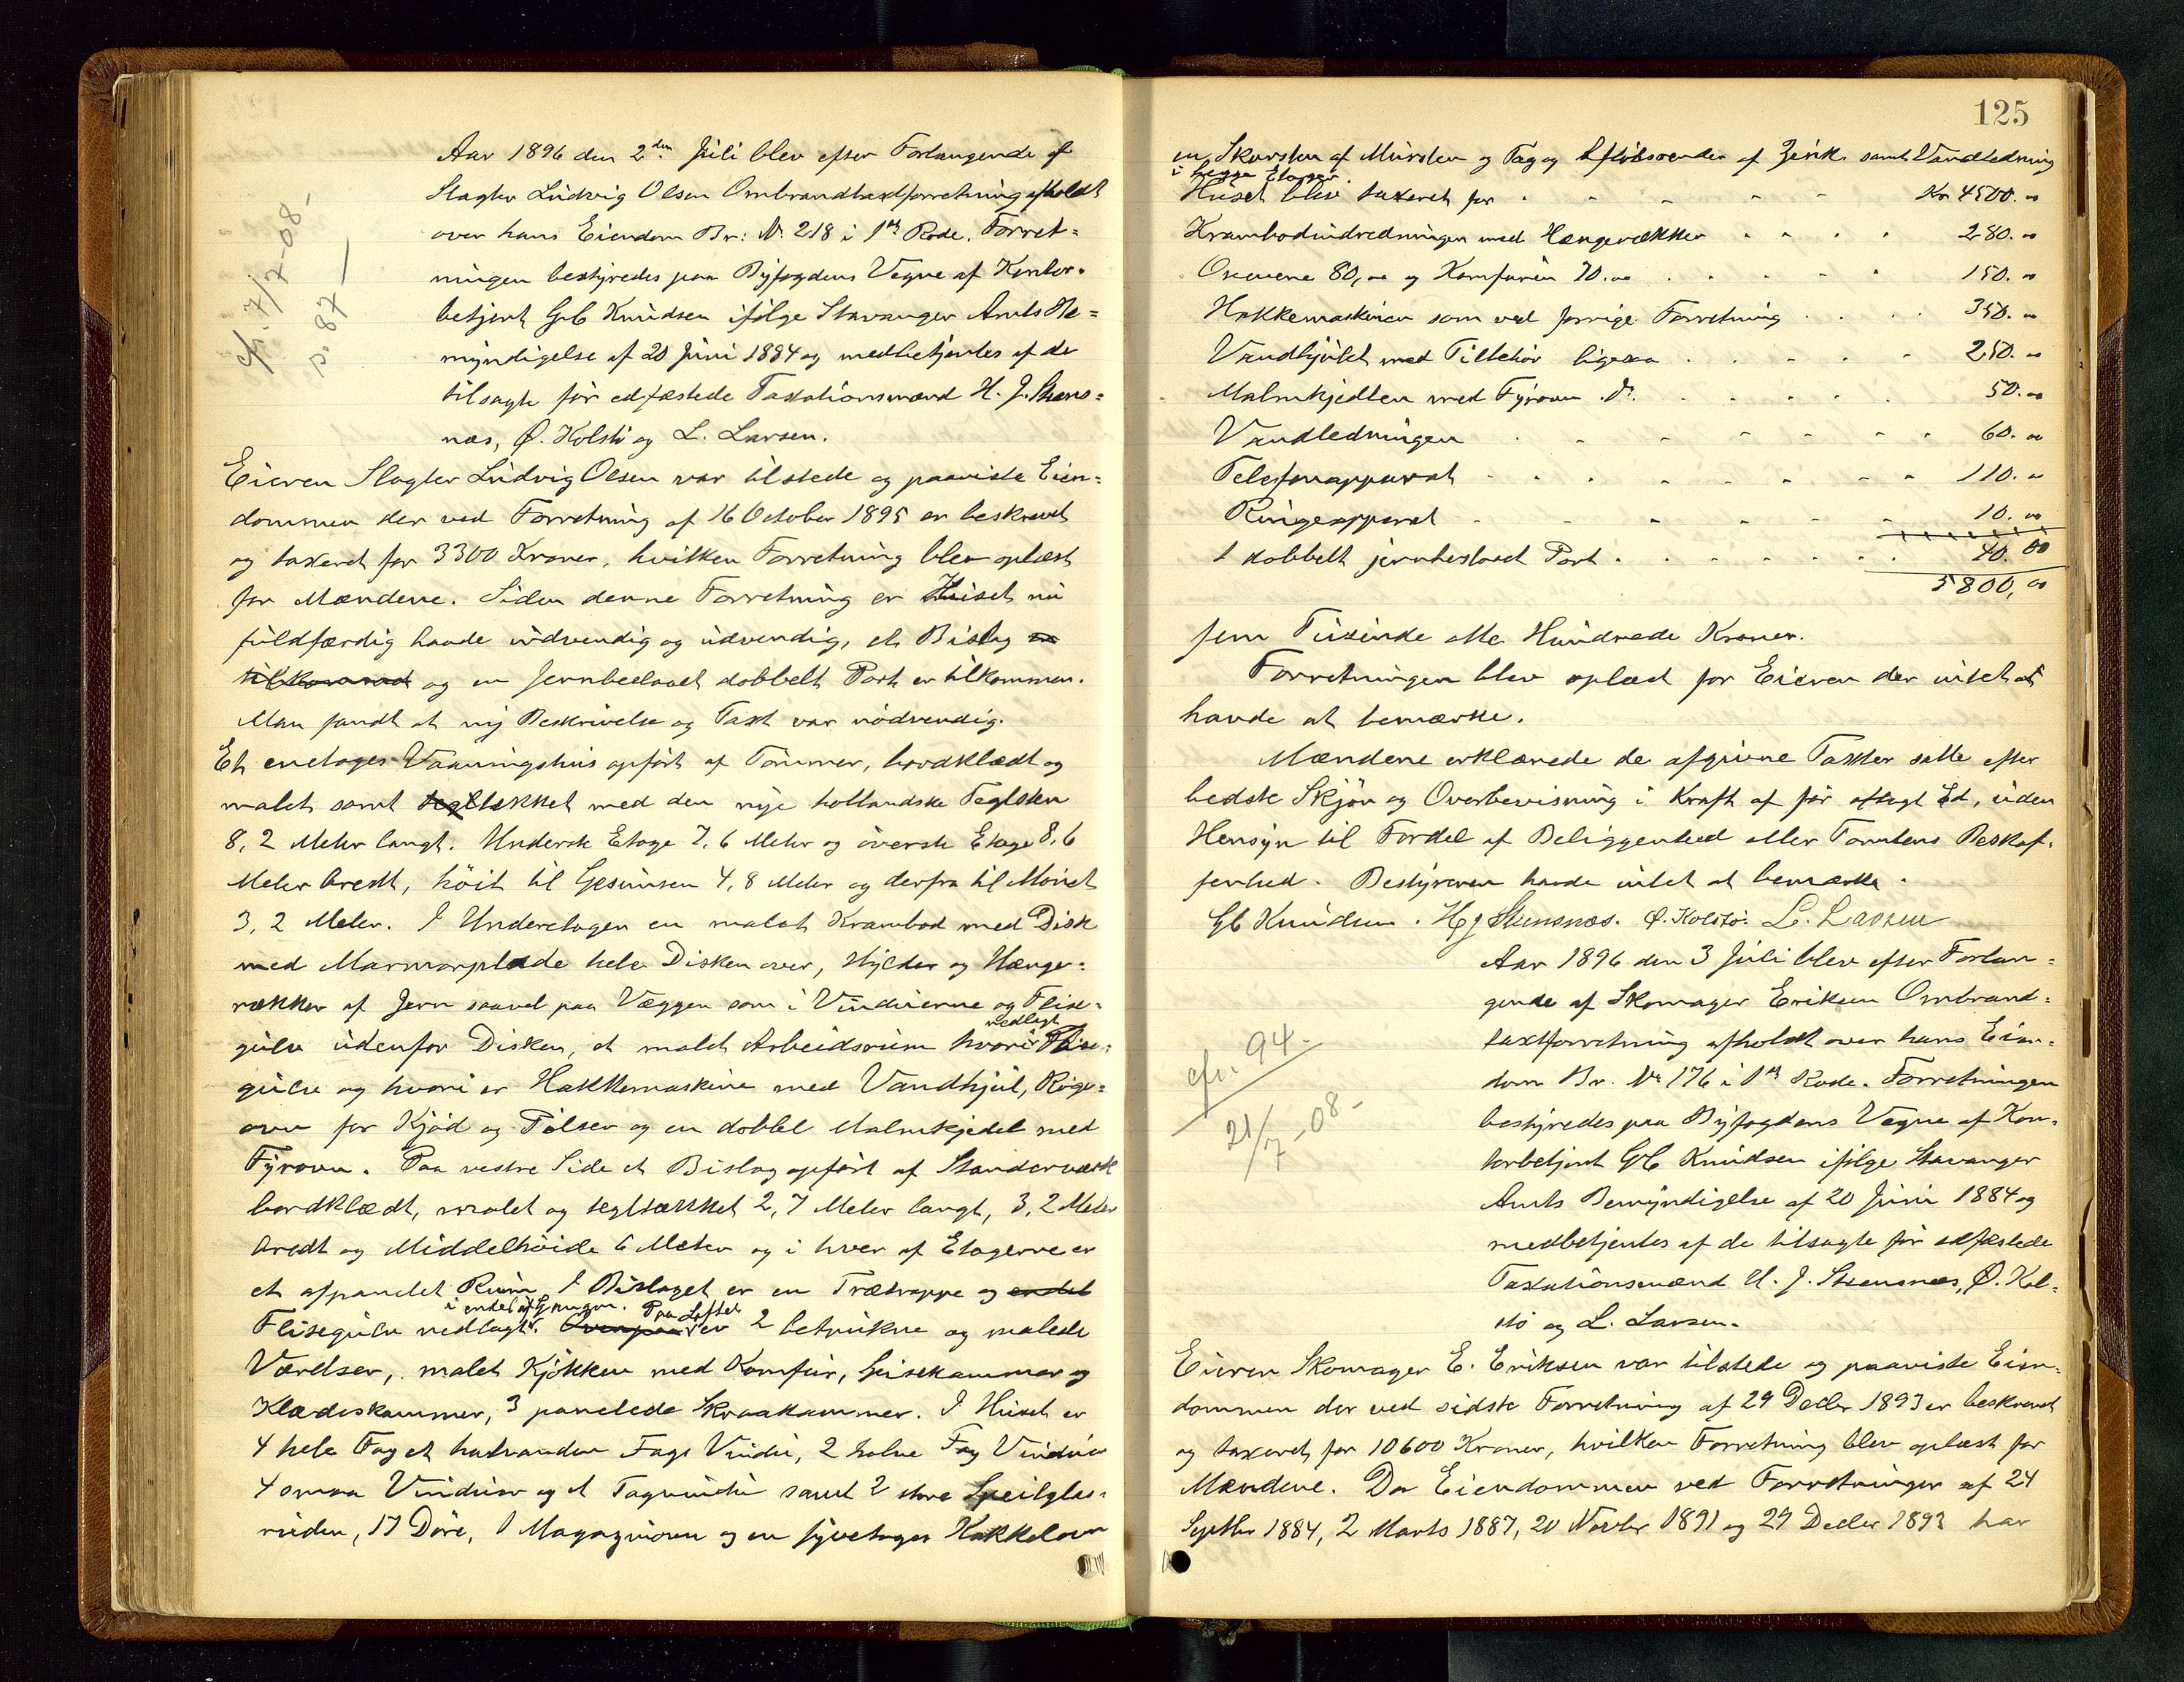 Aar 1896 den 2den Juli blev efter Forlangende af
Slagter Ludvig Olsen Ombrandtaxtforretning afholdt
over hans Eiendom Br: No 218 i 1ste Rode. Forret=
ningen bestyredes paa Byfogdens Vegne af Kontor-
betjent Gb Knudsen ifølge Stavanger Amts Be=
myndigelse af 20 Juni 1884 og medbetjentes af de
tilsagte før edfæstede Taxationsmænd H. J. Stens=
næs, O. Kolstø og L. Larsen.
cfr. 7/7-08-
p. 87
Eieren Slagter Ludvig Olsen var tilstede og paaviste Eien=
dommen der ved Forretning af 16 October 1895 er beskrevet
og taxeret for 3300 Kroner, hvilken Forretning blev oplæst
for Mændene. Siden denne Forretning er Huset nu
fuldfærdig baade indvendig og udvendig, et Bislag er
tilkommet og en Jernbeslaaet dobbelt Port er tilkommen.
Man fandt at ny Beskrivelse og Taxt var nødvendig.
Et enetages Vaaningshus opført af Tømmer, bordklædt og
malet samt tegltækket med den nye hollandske Teglsten
8,2 Meter langt. Underste Etage 7,6 Meter og øverste Etage 8,6
Meter bredt, høit til Gesimsen 4,8 Meter og derfra til Mønet
3,2 Meter. I Underetagen en malet Krambod med Disk
med Marmorplade hele Disken over, Hylder og Hænge=
rækker af Jern saavel paa Væggen som i Vinduerne og Flise=
gulv udenfor Disken, et malet Arbeidsrum hvori nedlagt Flise=
gulv og hvori er Hakkemaskine med Vandhjul, Røge=
ovn for Kjød og Pølser og en dobbel Malmkjedel med
Fyrovn. Paa vestre Side et Bislag opført af Standerværk
bordklædt, malet og tegltækket 2,7 Meter langt, 3,2 Meter
bredt og Middelhøide 6 Meter og i hver af Etagerne er
et afpanelet Rum. I Bislaget er en Trætrappe og endel
Flisegulv nedlagt i endel af Gangen. Ovenpaa Paa Loftet er 2 betrukne og malede
Værelser, malet Kjøkken med Komfur, Spisekammer og
Klædeskammer, 3 panelede Skraakammer. I Huset er
4 hele Fag et halvanden Fags Vindu, 2 halve Fag Vinduer
4 smaa Vinduer og et Tagvindu samt 2 store Speilglas-
ruder, 17 Døre, 1 Magazinovn og en fyretages Kakkelovn
125
en Skorsten af Mursten og Tag og Afløbsrender af Zink samt Vandledning
i begge Etager.
Huset blev taxeret for Kr 4500.00
Krambodindredningen med Hængerækker 280.00
Ovnene 80,00 og Komfuren 70.00 150.00
Hakkemaskinen som ved forrige Forretning 350.00
Vandhjulet med Tilbehør ligesaa 250.00
Malmkjedlen med Fyrovn do. 50.00
Vandledningen 60.00
Telefonapparat 110.00
Ringeapparat 10.00
1 dobbelt jernbeslaaet Port 40.00
5800,00
fem Tusinde otte Hundrede Kroner.
Forretningen blev oplæst for Eieren der intet at
havde at bemærke.
Mændene erklærede de afgivne Taxter satte efter
bedste Skjøn og Overbevisning i Kraft af før aflagt Ed, uden
Hensyn til Fordel af Beliggenhed eller Tomtens Beskaf-
fenhed. Bestyreren havde intet at bemærke.
Gb Knudsen. H J Stensnæs. O. Kolstø. L. Larsen
Aar 1896 den 3 Juli blev efter Forlan=
gende af Skomager Eriksen Ombrand=
taxtforretning afholdt over hans Eien=
dom Br. No 176 i 1ste Rode. Forretningen
bestyredes paa Byfogdens Vegne af Kon-
torbetjent Gb Knudsen ifølge Stavanger
Amts Bemyndigelse af 20 Juni 1884 og
medbetjentes af de tilsagte før edfæstede
Taxationsmænd H. J. Stensnæs, O. Kol=
stø og L. Larsen.
cfr. 94-
21/7-08-
Eieren Skomager E. Eriksen var tilstede og paaviste Eien-
dommen der ved sidste Forretning af 29 Decbr 1893 er beskrevet
og taxeret for 10600 Kroner, hvilken Forretning blev oplæst for
Mændene. Da Eiendommen ved Forretninger af 24
Septbr 1884, 2 Marts 1887, 20 Novbr 1891 og 29 Decbr 1893 har